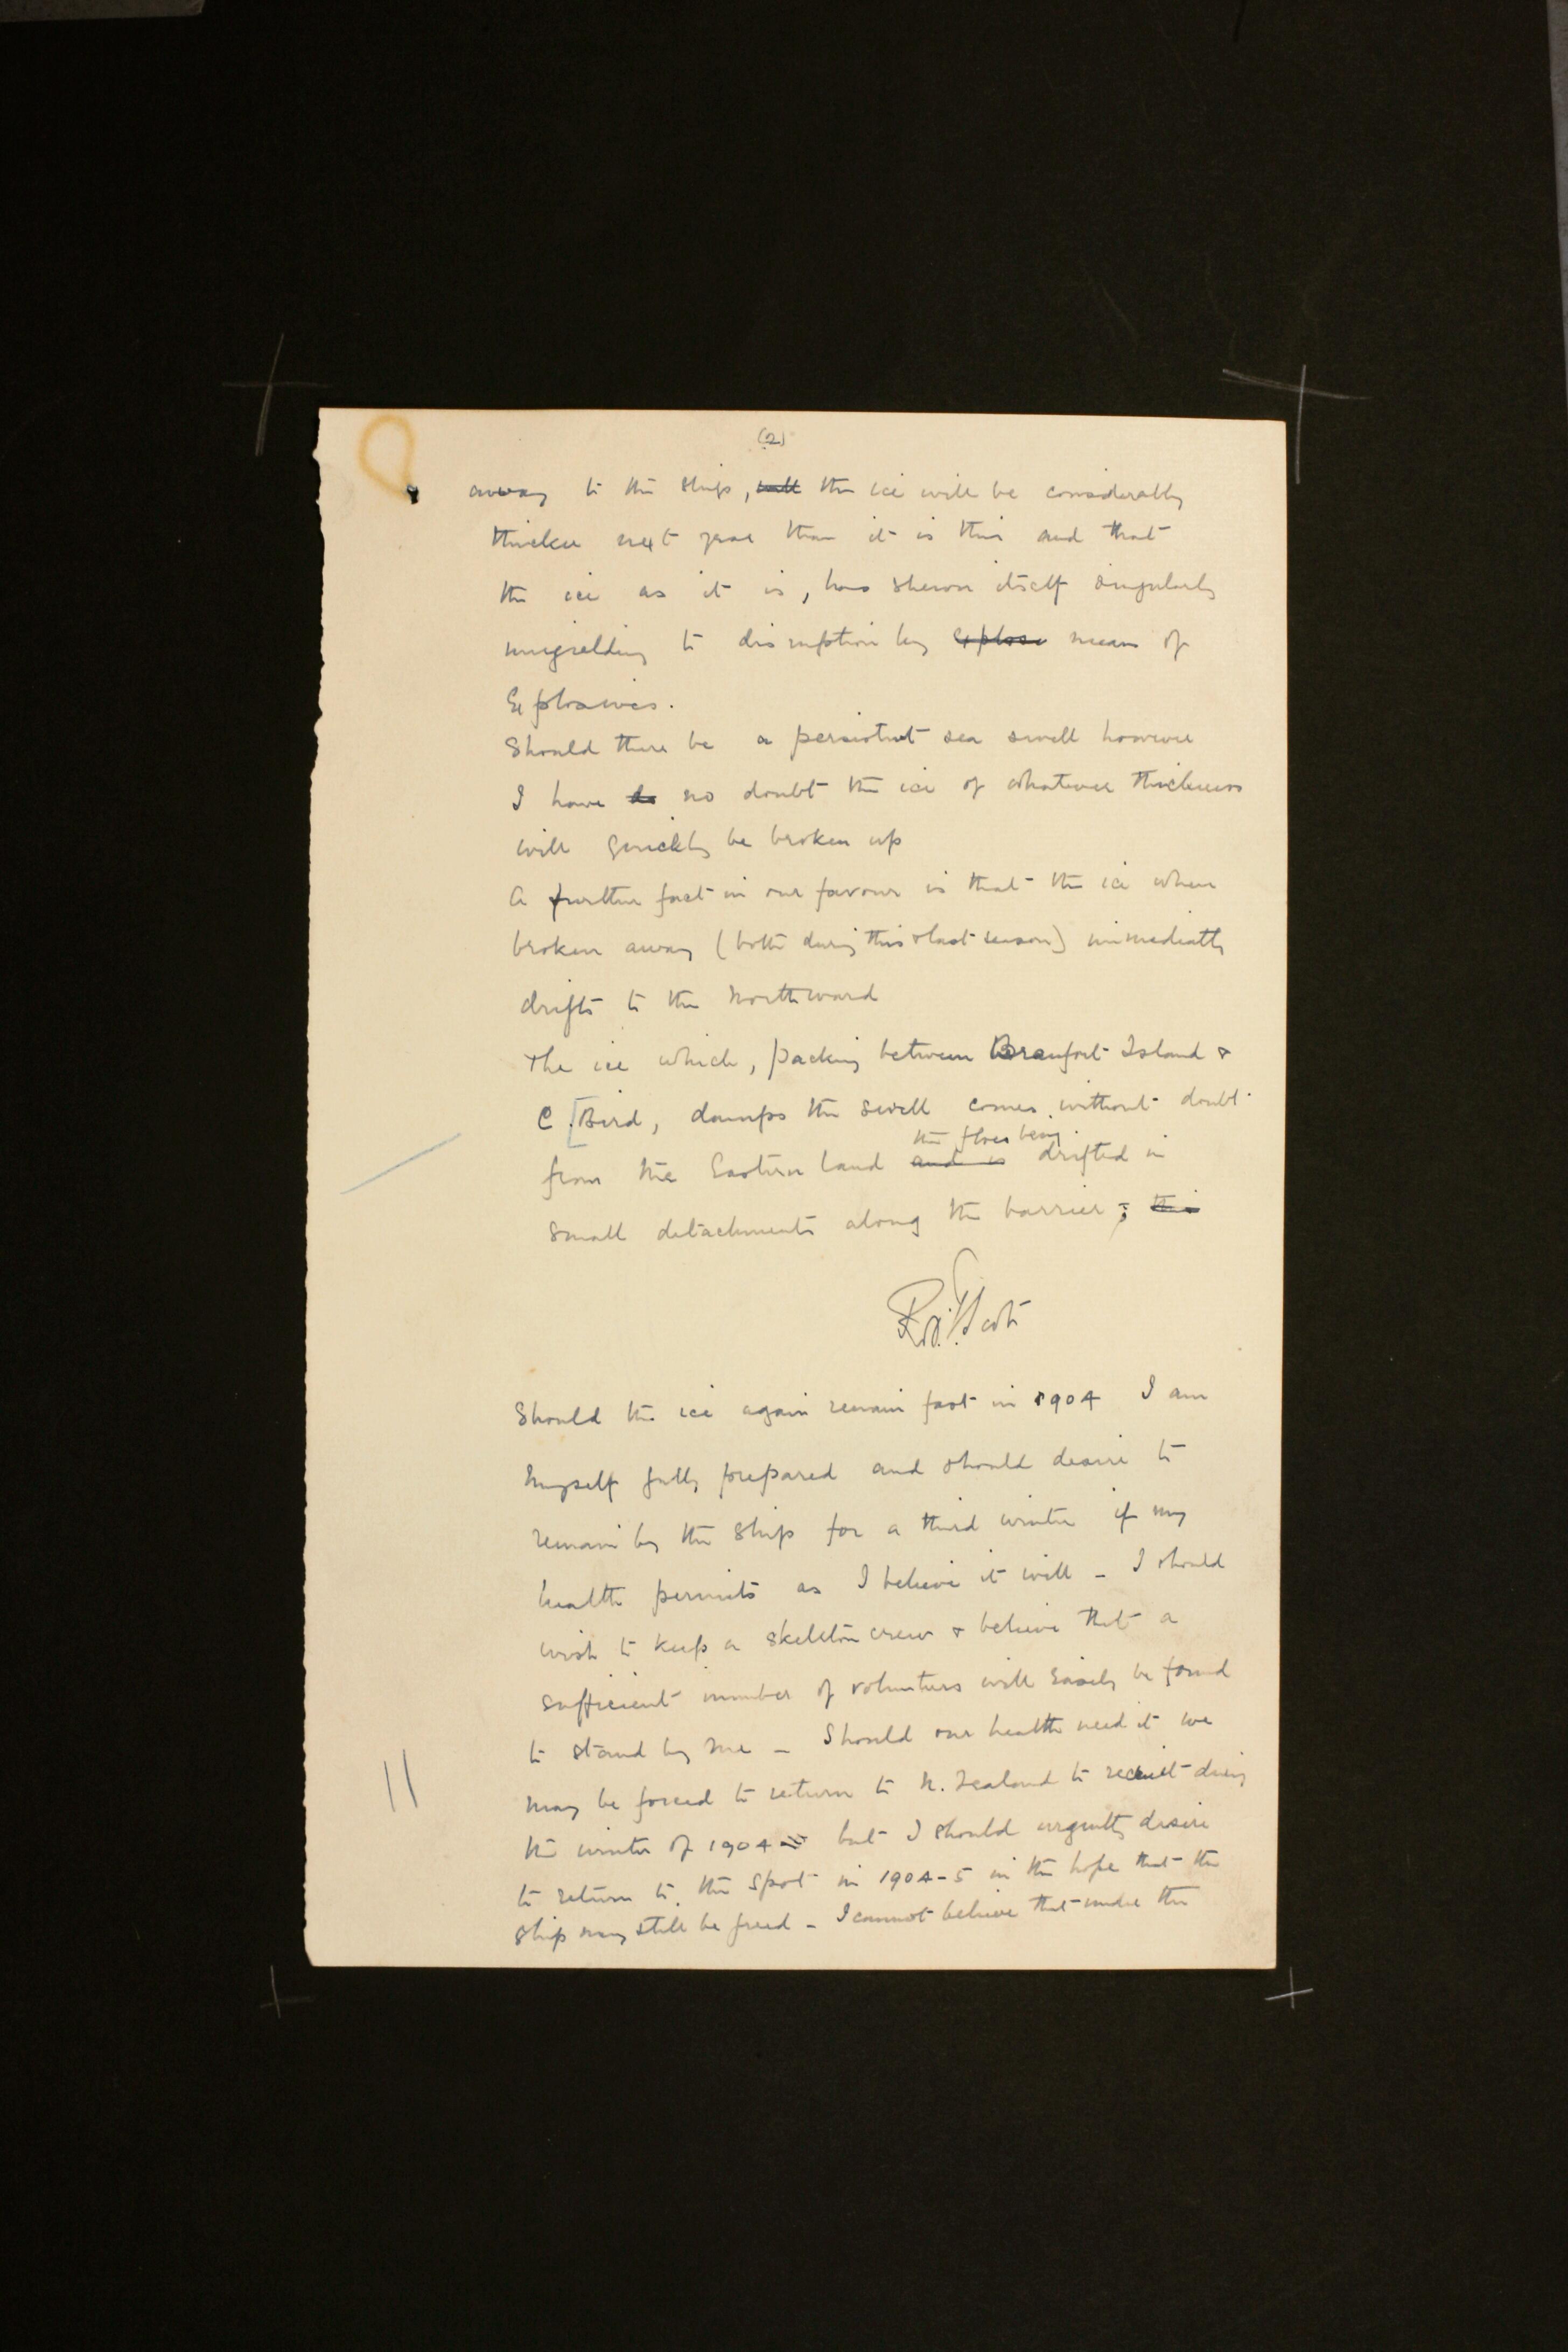 (2)
away to the ship, will the ice will be considerably
thicker next year than it is this and that
the ice as it is, has shewn itself singularly
unyielding to disruption by explosi means of
Explosives.
Should there be a persistent sea swell however
I have do no doubt the ice of whatever thickness
will quickly be broken up
A further fact in our favour is that the ice when
broken away (both during this & last season) immediately
drifts to the Northward
The ice which, packing between Beaufort Island &
C. [Bird, damps the swell comes without doubt
the floes being
from the Eastern land and is drifted in
small detachments along the barrier; this
R.F. Scott
Should the ice again remain fast in 1904 I am
myself fully prepared and should desire to
remain by the ship for a third winter if my
health permits as I believe it will - I should
wish to keep a skeleton crew & believe that a
sufficient number of volunteers will easily be found
to stand by me - Should our health need it we
may be forced to return to N. Zealand to recruit during
the winter of 1904 but I should urgently desire
to return to the spot in 1904-5 in the hope that the
ship may still be freed - I cannot believe that under the